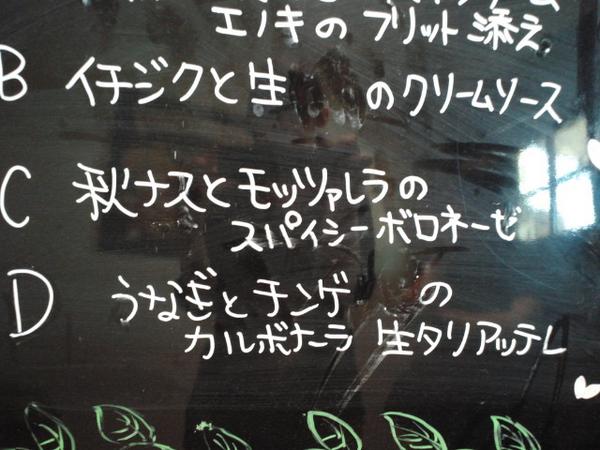 エノキのフリット添え
B イチジクと生 のクリームソース
C 秋ナスとモッツァレラの
スパイシーボロネーゼ
D うなぎとチンゲ の
カルボナーラ 生タリアッテレ